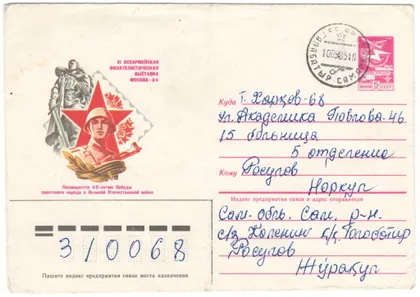 VI ВСЕАРМЕЙСКАЯ
ФИЛАТЕЛИСТИЧЕСКАЯ
ВЫСТАВКА
Посвящается 40-летию Победы
советского народа в Великой Отечественной войне
Куда г. Харков-68
ул. Академика Павлова-46
15 больница
5 отделение
Кому Расулов
Норкул
Индекс предприятия связи и адрес отправителя
Сам. обл. Сам. р-н
с/з Калинин
Расулов
Жӯракул
310068
Пишите индекс предприятия связи места назначения